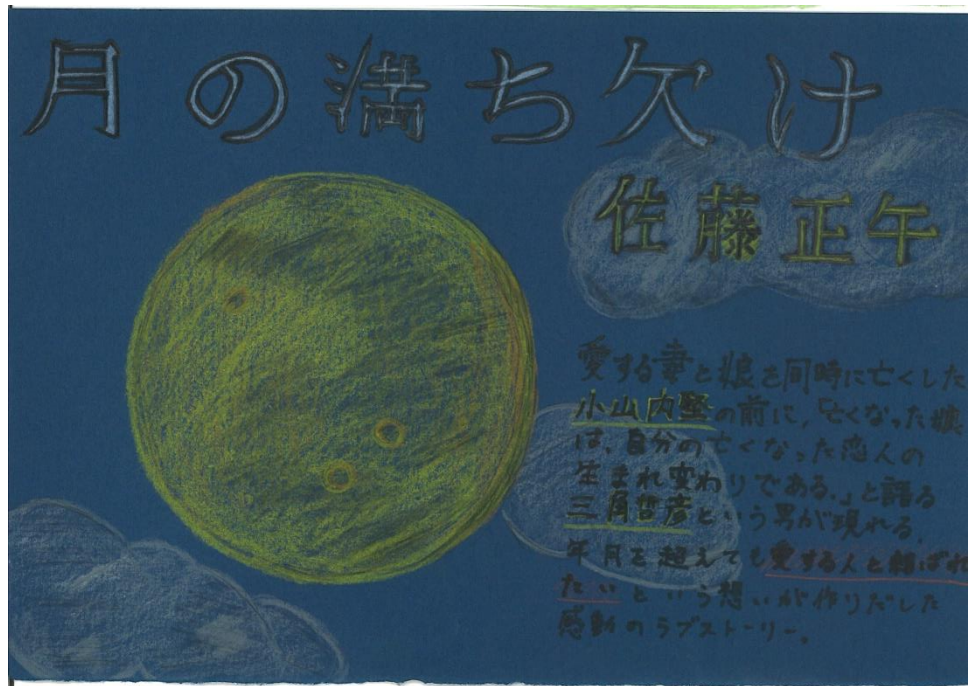 月の満ち欠け
佐藤正午
愛する妻と娘を同時に亡くした
小山内堅の前に、「亡くなった娘
は、自分の亡くなった恋人の
生まれ変わりである。」と語る
三角哲彦という男が現れる。
年月を超えても愛する人と結ばれ
たいという想いが作りだした
感動のラブストーリー。